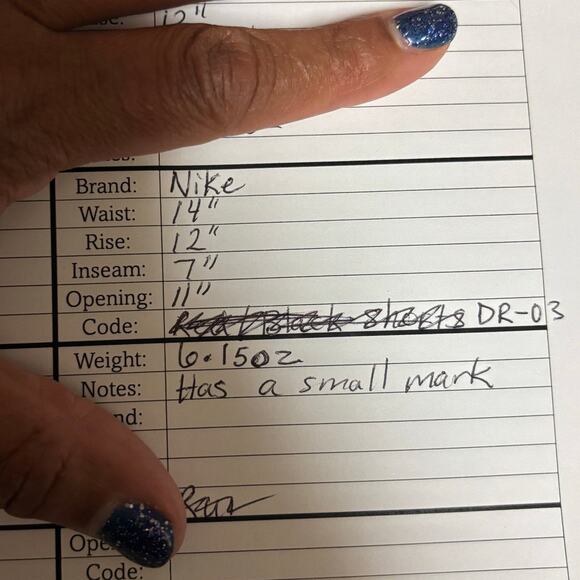 12"
Brand: Nike
Waist: 14"
Rise: 12"
Inseam: 7"
Opening: 11"
Code: shorts DR-03
Weight: 6.15oz
Notes: Has a small mark
nd:
Ope
Code: